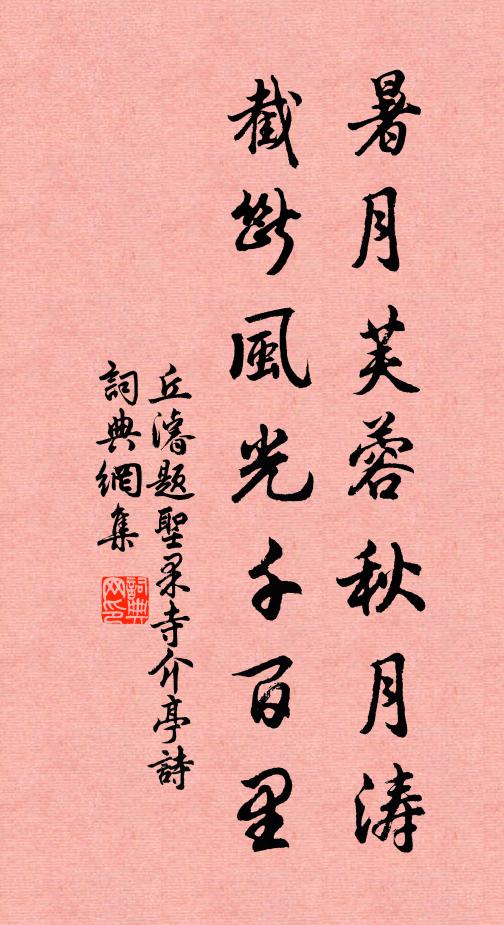 暑月芙蓉秋月濤
截斷風光千百里
丘濬題聖果寺介亭詩
詞典網集
詞典網印